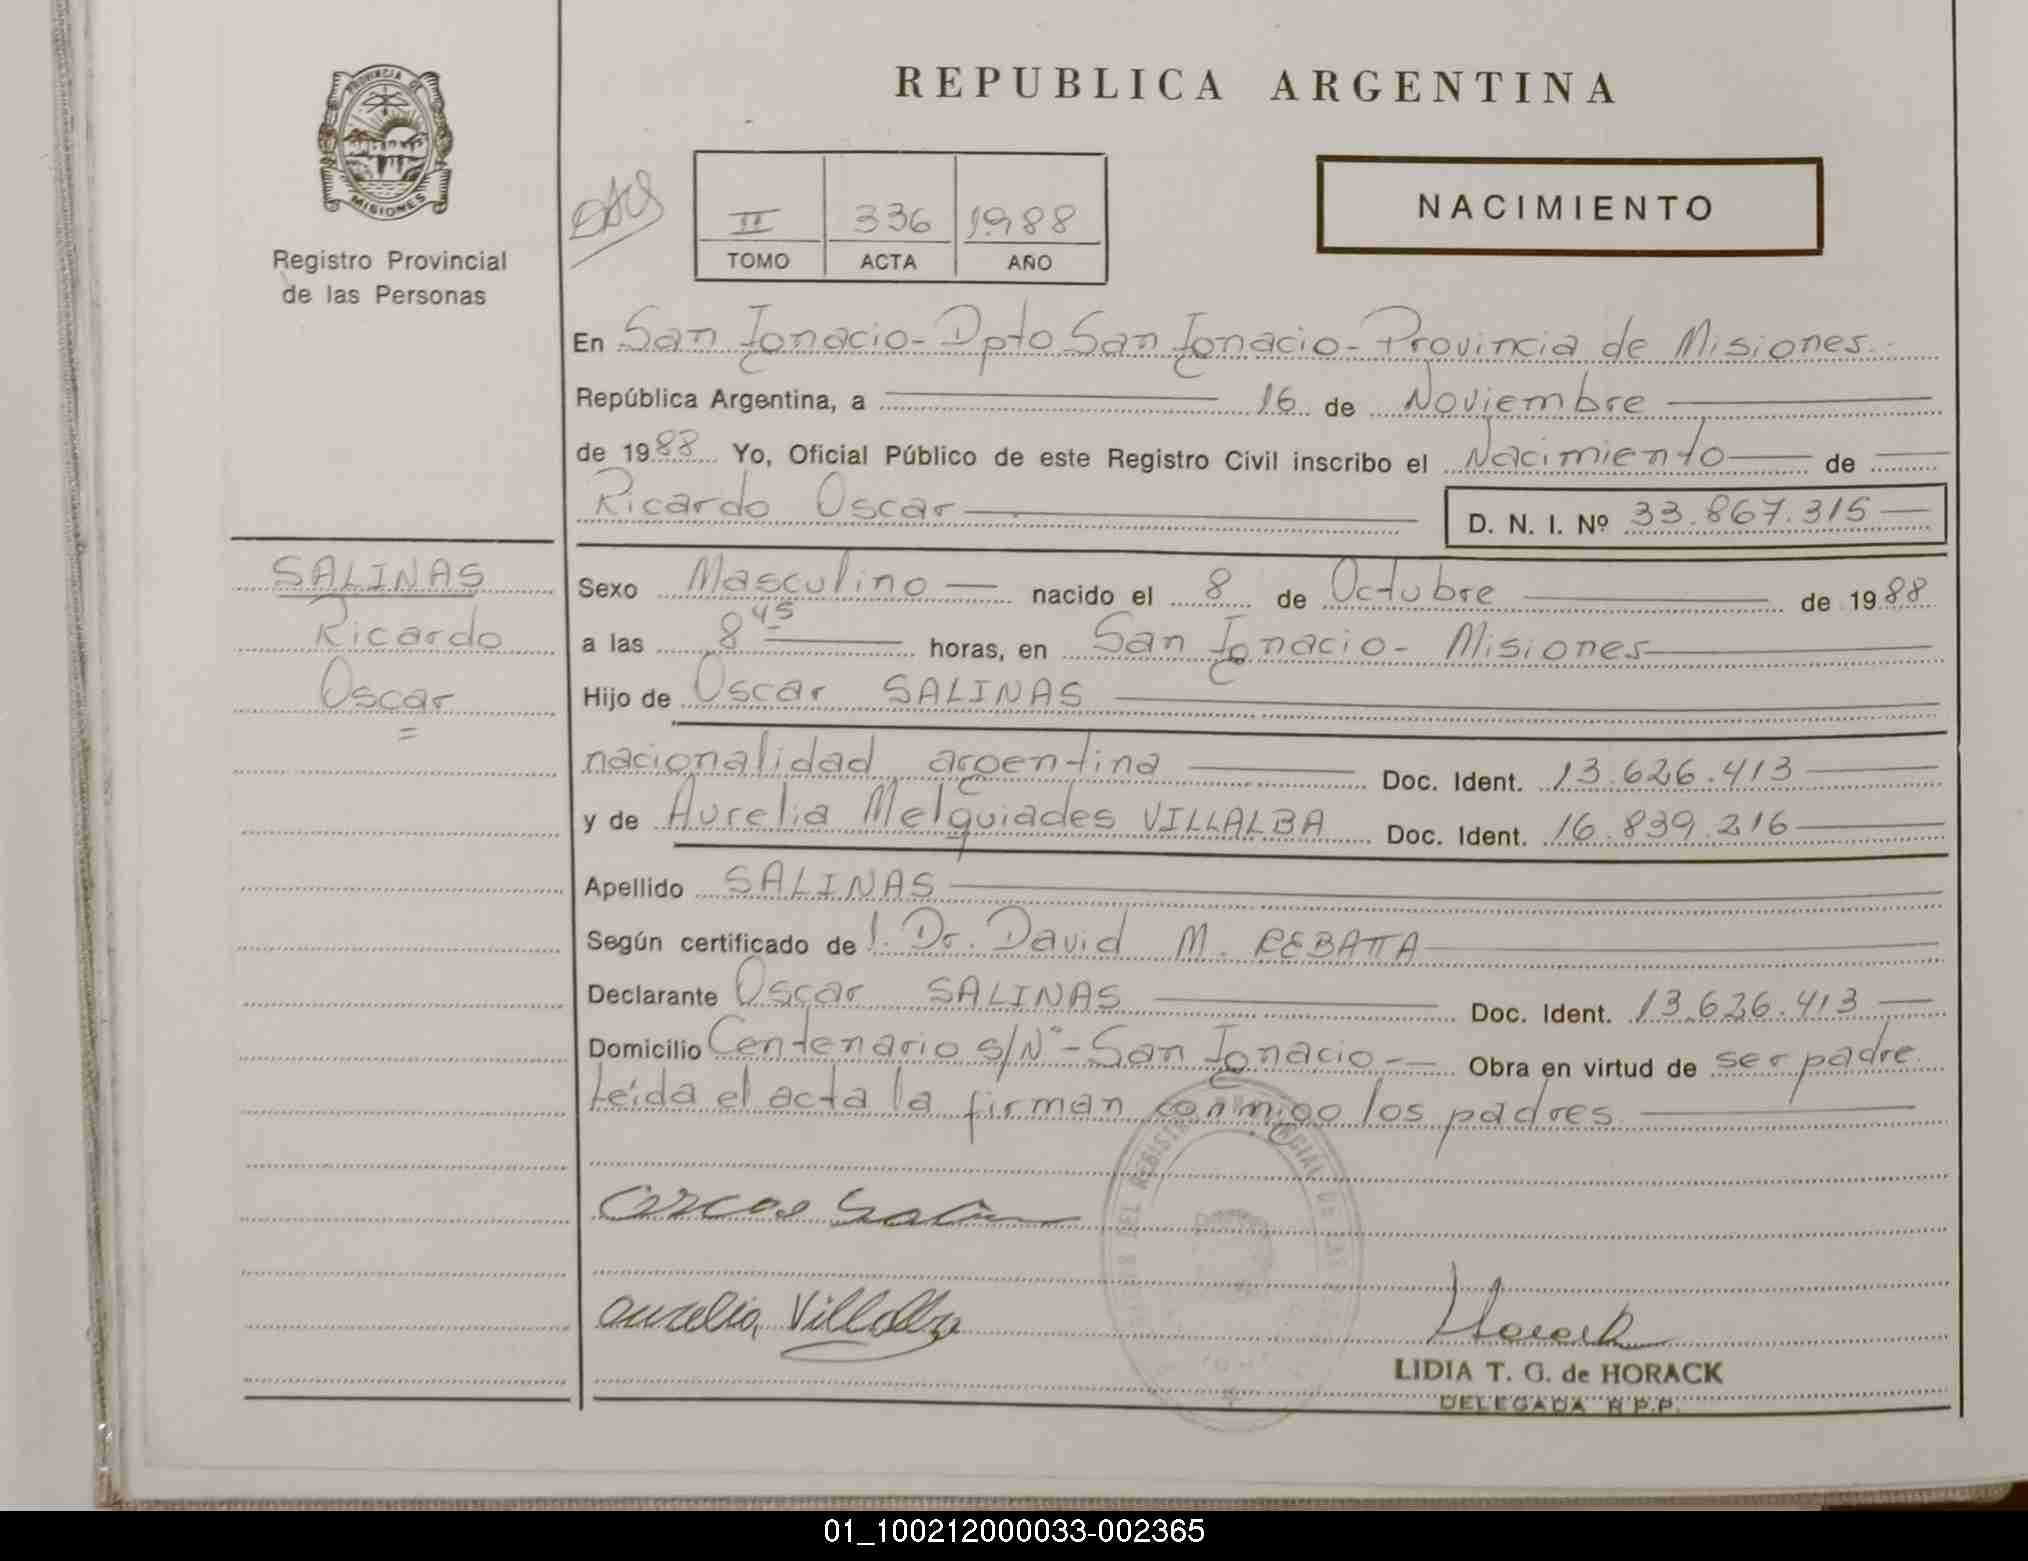 PROVINCIA DE
MISIONES
Registro Provincial
de las Personas
REPUBLICA ARGENTINA
II 336 1988
TOMO ACTA AÑO
NACIMIENTO
En San Ignacio - Dpto San Ignacio - Provincia de Misiones.
República Argentina, a 16 de Noviembre
de 1988 Yo, Oficial Público de este Registro Civil inscribo el Nacimiento de
Ricardo Oscar D. N. I. Nº 33.867.315
SALINAS
Ricardo
Oscar
Sexo Masculino nacido el 8 de Octubre de 1988
a las 8 45 horas, en San Ignacio - Misiones
Hijo de Oscar SALINAS
nacionalidad argentina Doc. Ident. 13.626.413
y de Aurelia Melquiades VILLALBA Doc. Ident. 16.839.216
Apellido SALINAS
Según certificado de l. Dr. David M. REBATTA
Declarante Oscar SALINAS Doc. Ident. 13.626.413
Domicilio Centenario s/Nº - San Ignacio - Obra en virtud de ser padre.
Leída el acta la firman conmigo los padres
Aurelia Villalba
Horack
LIDIA T. G. de HORACK
DELEGADA R.P.P.
01_100212000033-002365